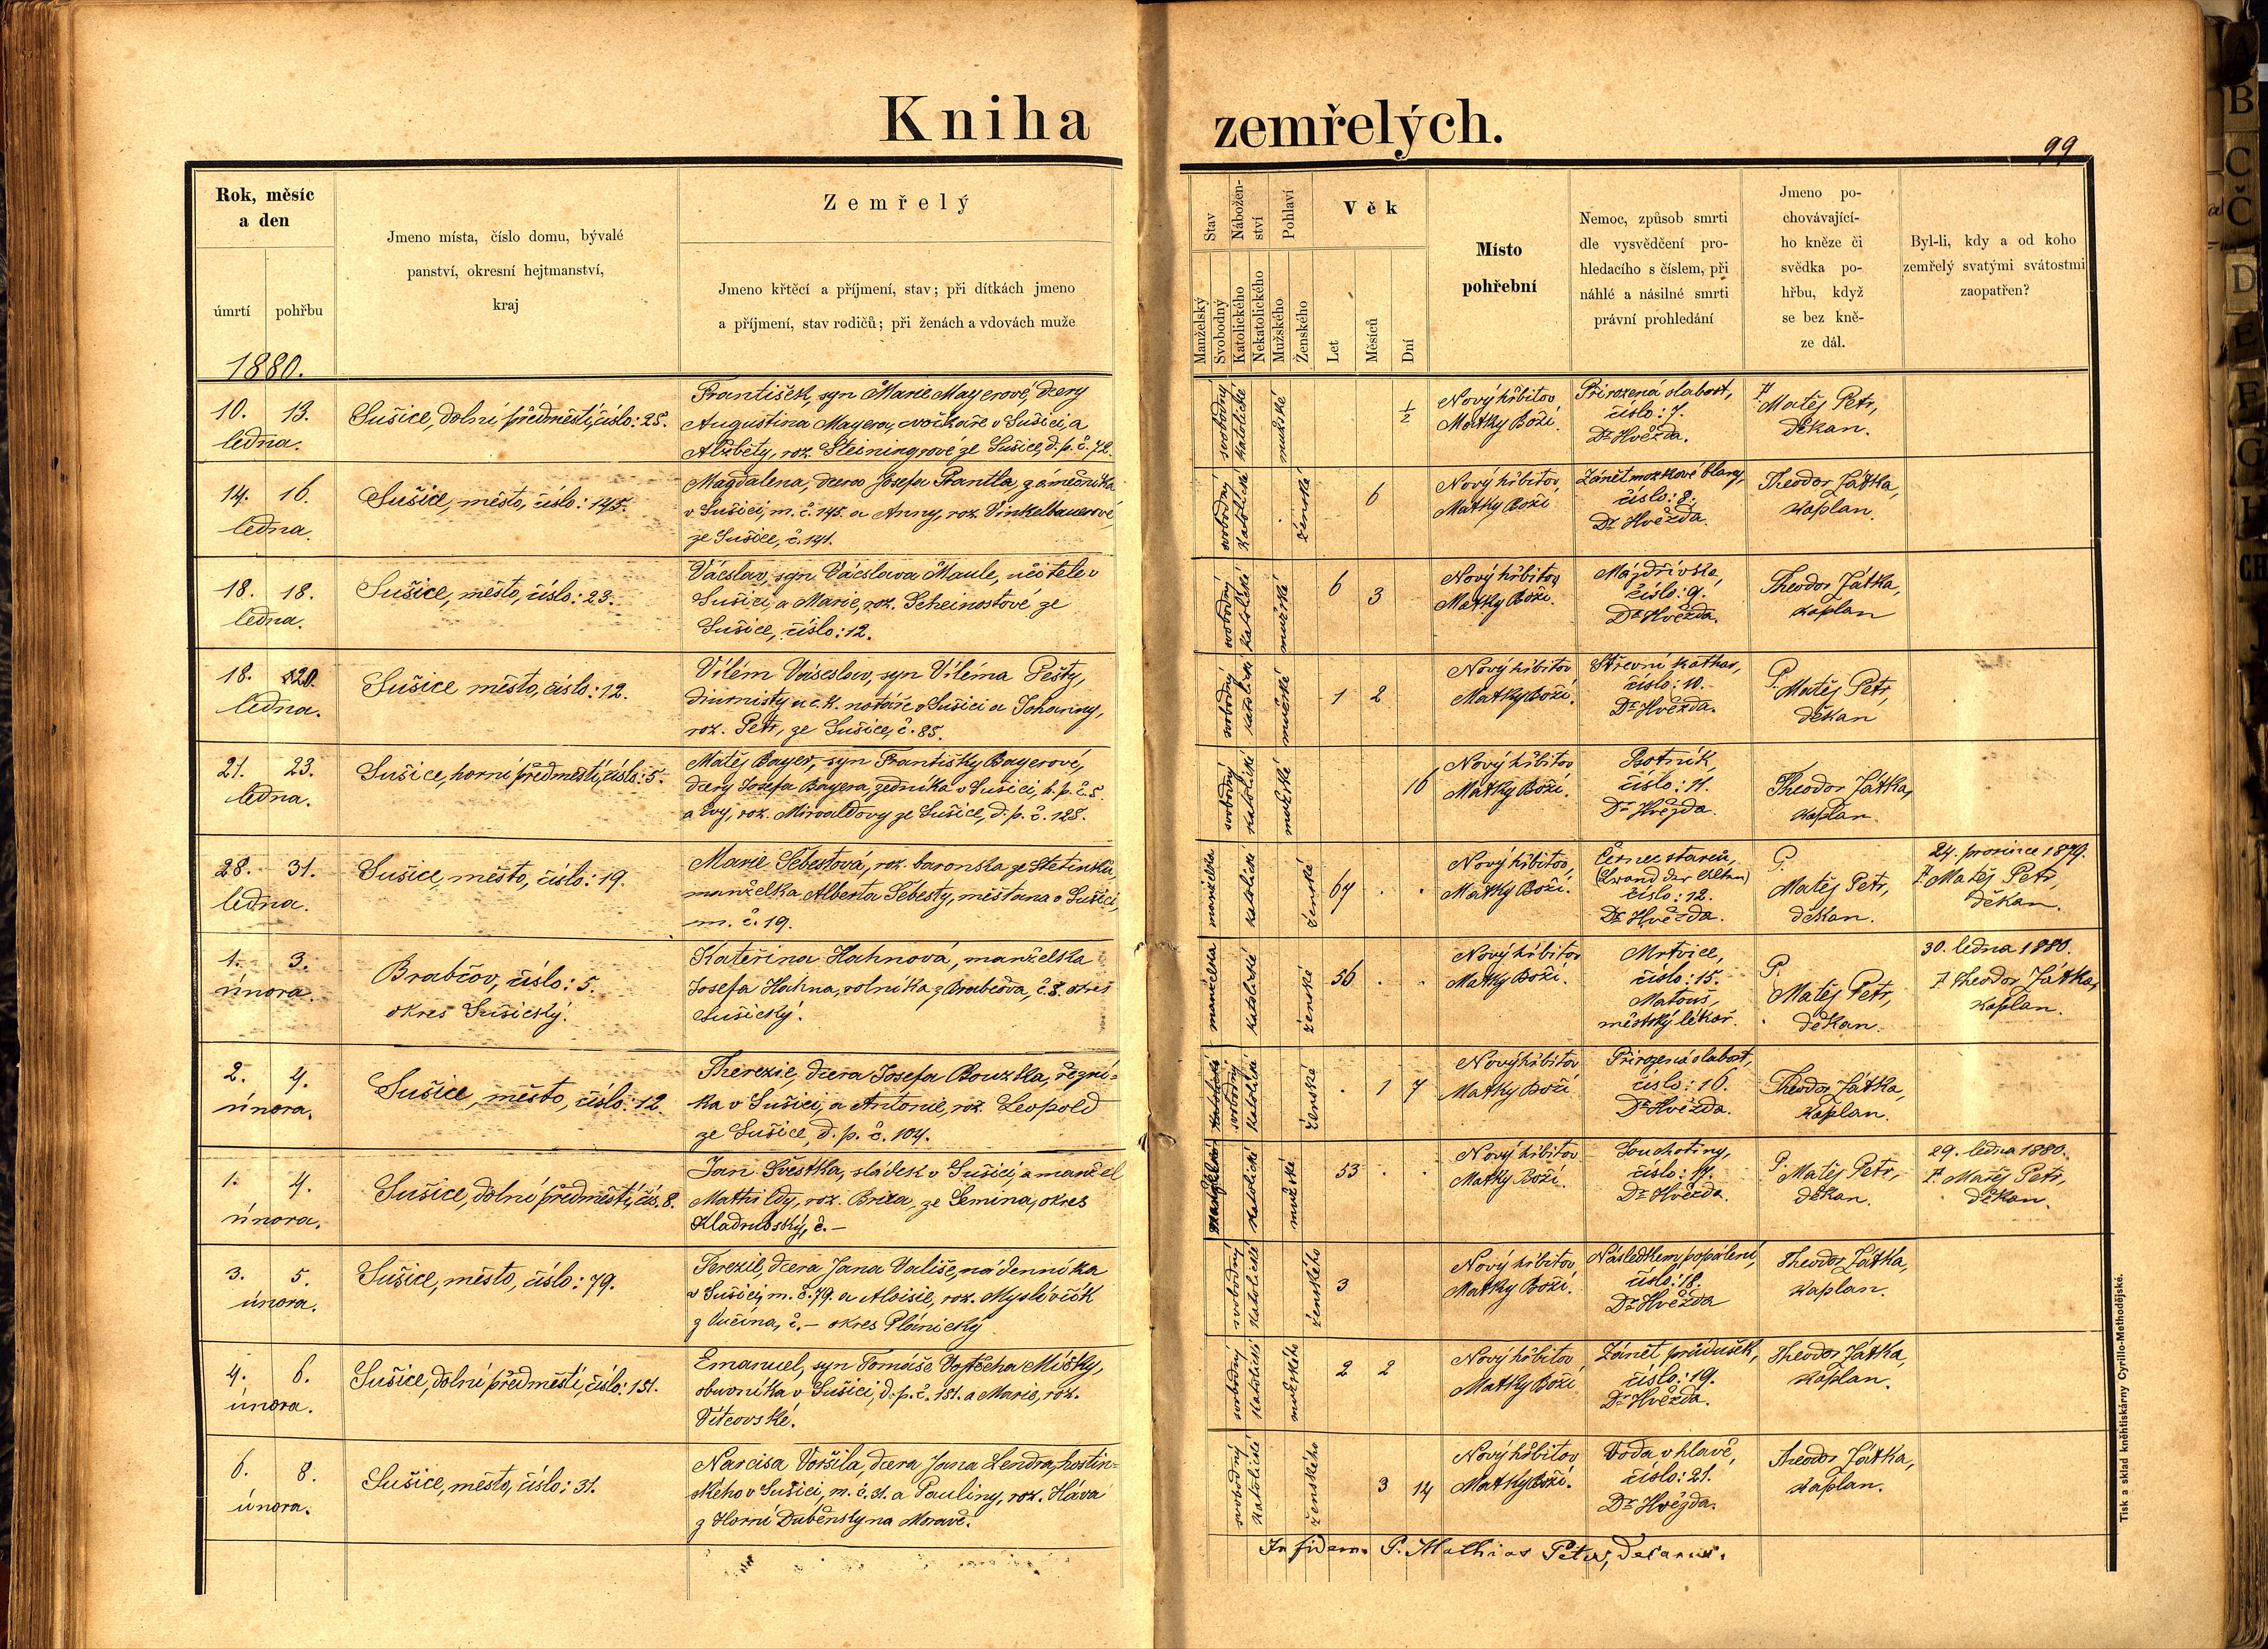 Kniha zemřelých.
99
Rok, měsíc
a den
úmrtí
pohřbu
1880.
Jmeno místa, číslo domu, bývalé
panství, okresní hejtmanství,
kraj
Zemřelý
Jmeno křtěcí a příjmení, stav; při dítkách jmeno
a příjmení, stav rodičů; při ženách a vdovách muže
Stav
Manželský
Svobodný
Nábožen-
ství
Katolického
Nekatolického
Pohlaví
Mužského
Ženského
Věk
Let
Měsíců
Dní
Místo
pohřební
Nemoc, způsob smrti
dle vysvědčení pro-
hledacího s číslem, při
náhlé a násilné smrti
právní prohledání
Jmeno po-
chovávající-
ho kněze či
svědka po-
hřbu, když
se bez kně-
ze dál.
Byl-li, kdy a od koho
zemřelý svatými svátostmi
zaopatřen?
10. 13.
ledna.
Sušice, dolní předměstí, číslo: 25.
František, syn Marie Mayerové, dcery
Augustina Mayera, cvočkaře v Sušici, a
Alžběty, roz. Steiningrové ze Sušice, d. p. č. 72.
svobodný
katolické
mužské
½
Nový hřbitov
Matky Boží.
Přirozená slabost,
číslo: 7.
Dr Hvězda.
P. Matěj Petr,
děkan.
14. 16.
ledna.
Sušice, město, číslo: 145.
Magdalena, dcera Josefa Prantla, zámečníka
v Sušici, m. č. 145. a Anny, roz. Vinkelbauerové,
ze Sušice, č. 141.
svobodný
katolické
ženské
6
Nový hřbitov
Matky Boží.
Zánět mozkové blany,
číslo: 8.
Dr Hvězda.
Theodor Játka,
kaplan.
18. 18.
ledna.
Sušice, město, číslo: 23.
Vácslav, syn Vácslava Maule, učitele v
Sušici, a Marie, roz. Scheinostové ze
Sušice, číslo: 12.
svobodný
katolické
mužské
6 3
Nový hřbitov
Matky Boží.
číslo: 9.
Dr Hvězda.
Theodor Játka,
kaplan
18. 20.
ledna.
Sušice město, číslo: 12.
Vilém Vácslav, syn Viléma Pešty,
diurnisty u c. k. notáře v Sušici a Johanny,
roz. Petr, ze Sušice, č. 85.
svobodný
katolické
mužské
1 2
Nový hřbitov
Matky Boží.
Střevní kathar,
číslo: 10.
Dr Hvězda.
P. Matěj Petr,
děkan
21. 23.
ledna.
Sušice, horní předměstí, číslo: 5.
Matěj Bayer, syn Františky Bayerové,
dcery Josefa Bayera, zedníka v Sušici, h. p. č. 5
a Evy, roz. Mirvaldovy ze Sušice, d. p. č. 128.
svobodný
katolické
mužské
16
Nový hřbitov
Matky Boží.
Psotník,
číslo: 11.
Dr Hvězda.
Theodor Játka,
kaplan
28. 31.
ledna.
Sušice, město, číslo: 19.
Marie Šebestová, roz. baronska ze Stetinků
manželka Alberta Šebesty, měšťana v Sušici,
m. č. 19.
manželská
katolické
ženské
64 . .
Nový hřbitov,
Matky Boží.
číslo: 12.
Dr Hvězda.
P.
Matěj Petr,
děkan.
24. prosince 1879.
P. Matěj Petr,
děkan.
1. 3.
února.
Brabčov, číslo: 5.
okres Sušický.
Kateřina Hahnová, manželka
Josefa Hahna, rolníka z Brabčova, č. 5. okres
Sušický.
manželská
katolické
ženské
56 . .
Nový hřbitov
Matky Boží.
Mrtvice,
číslo: 15.
Matouš,
městský lékař.
P.
Matěj Petr,
děkan.
30. ledna 1880.
P. Theodor Játka,
kaplan.
2. 4.
února.
Sušice, město, číslo: 12.
Therezie, dcera Josefa Bouzka, řezní-
ka v Sušici, a Antonie, roz. Leopold
ze Sušice, d. p. č. 104.
svobodný
katolické
ženské
. 1 7
Nový hřbitov
Matky Boží
Přirozená slabost,
číslo: 16.
Dr Hvězda.
Theodor Játka,
kaplan.
1. 4.
února.
Sušice, dolní předměstí, čís. 8.
Jan Švestka, sládek v Sušici, a manžel
Mathildy, roz. Breta, ze Semina, okres
Kladrubský, č. —
katolické
mužské
53 . .
Nový hřbitov
Matky Boží.
Souchotiny,
číslo: 17.
Dr Hvězda.
P. Matěj Petr,
děkan.
29. ledna 1880.
P. Matěj Petr,
děkan.
3. 5.
února.
Sušice, město, číslo: 79.
Terezie, dcera Jana Vališe, nádenníka
v Sušici, m. č. 79. a Aloisie, roz. Mysliveček
z Vučina, č. — okres Plánický
svobodný
katolické
ženského
3
Nový hřbitov
Matky Boží.
Následkem popálení,
číslo: 18.
Dr Hvězda
Theodor Játka,
kaplan.
4. 6.
února.
Sušice, dolní předměstí, číslo: 151.
Emanuel, syn Tomáše Vojtěcha Mičky,
obuvníka v Sušici, d. p. č. 151. a Marie, roz.
Vítcovské.
svobodný
katolické
mužského
2 2
Nový hřbitov
Matky Boží
Zánět průdušek,
číslo: 19.
Dr Hvězda.
Theodor Játka,
kaplan.
6. 8.
února.
Sušice, město, číslo: 31.
Narcisa Voršila, dcera Jana Lendra, hostin-
ského v Sušici, m. č. 31. a Pauliny, roz. Háva
z Horní Duběnky na Moravě.
svobodný
katolické
ženského
3 14
Nový hřbitov
Matky Boží.
Voda v hlavě,
číslo: 21.
Dr Hvězda.
Theodor Játka,
kaplan.
In fidem. P. Mathias Peter, decanus.
Tisk a sklad kněhtiskárny Cyrillo-Methodějské.